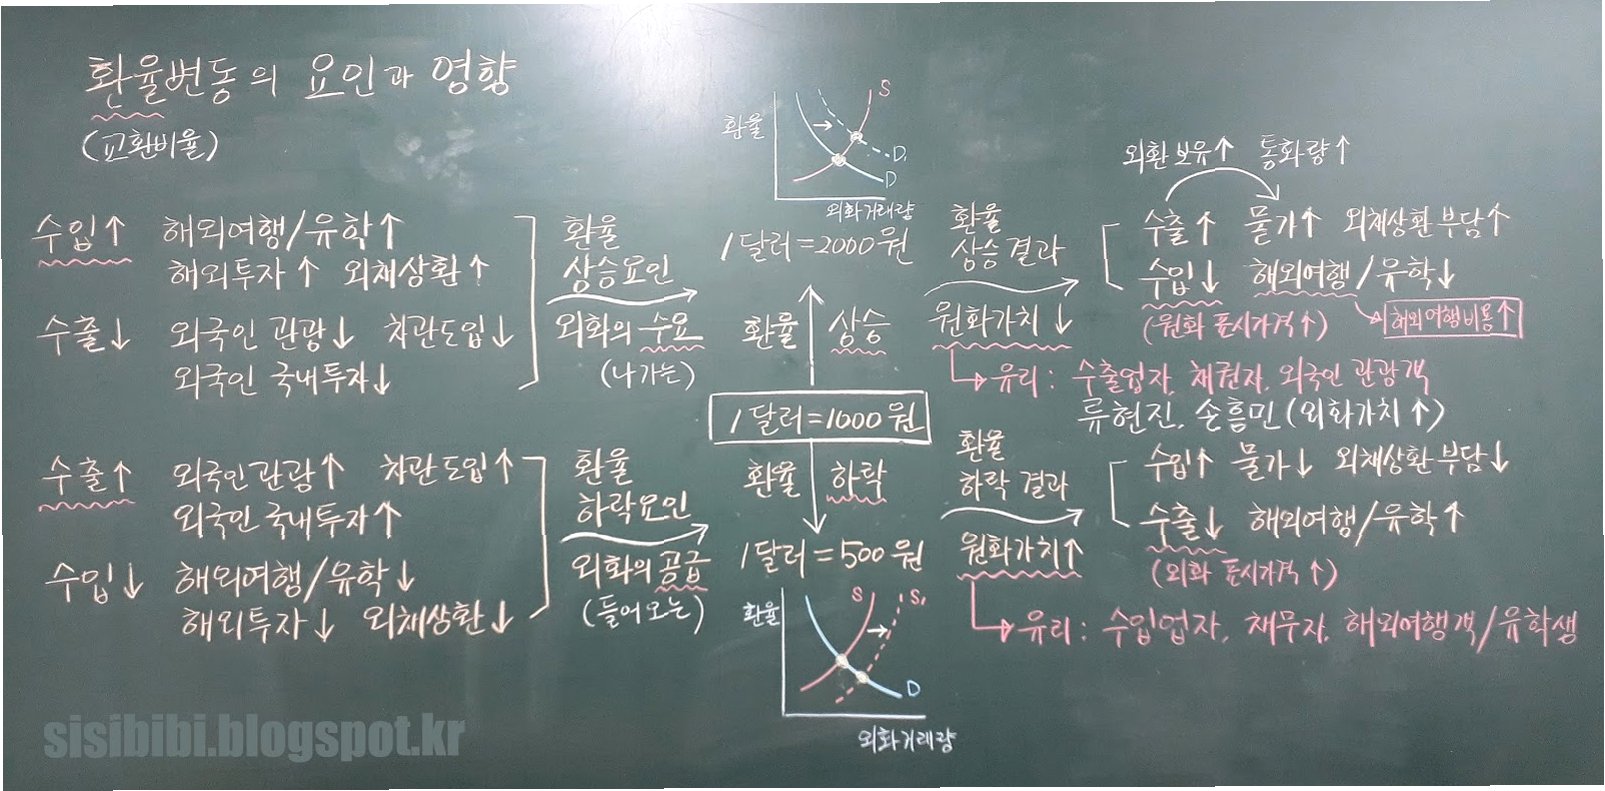 환율변동의 요인과 영향
(교환비율)
환율
S
D₁
D
외화거래량
1달러=2000원
수입↑ 해외여행/유학↑
해외투자↑ 외채상환↑
수출↓ 외국인 관광↓ 차관도입↓
외국인 국내투자↓
환율
상승요인
외화의 수요
(나가는)
환율 상승
1달러=1000원
환율
상승결과
원화가치↓
외환보유↑ 통화량↑
수출↑ 물가↑ 외채상환부담↑
수입↓ 해외여행/유학↓
(원화 표시가격↑) 해외여행비용↑
유리: 수출업자, 채권자, 외국인 관광객
류현진, 손흥민(외화가치↑)
수출↑ 외국인관광↑ 차관도입↑
외국인 국내투자↑
수입↓ 해외여행/유학↓
해외투자↓ 외채상환↓
환율
하락요인
외화의 공급
(들어오는)
환율 하락
1달러=500원
환율
S
S₁
D
외화거래량
환율
하락결과
원화가치↑
수입↑ 물가↓ 외채상환부담↓
수출↓ 해외여행/유학↑
(외화 표시가격↑)
유리: 수입업자, 채무자, 해외여행객/유학생
sisibibi.blogspot.kr